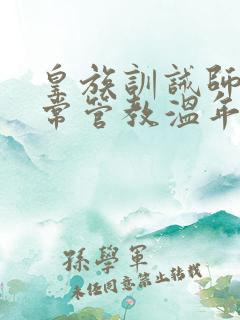 皇族訓誡師
常管教溫年
孫學軍
未经同意禁止转载